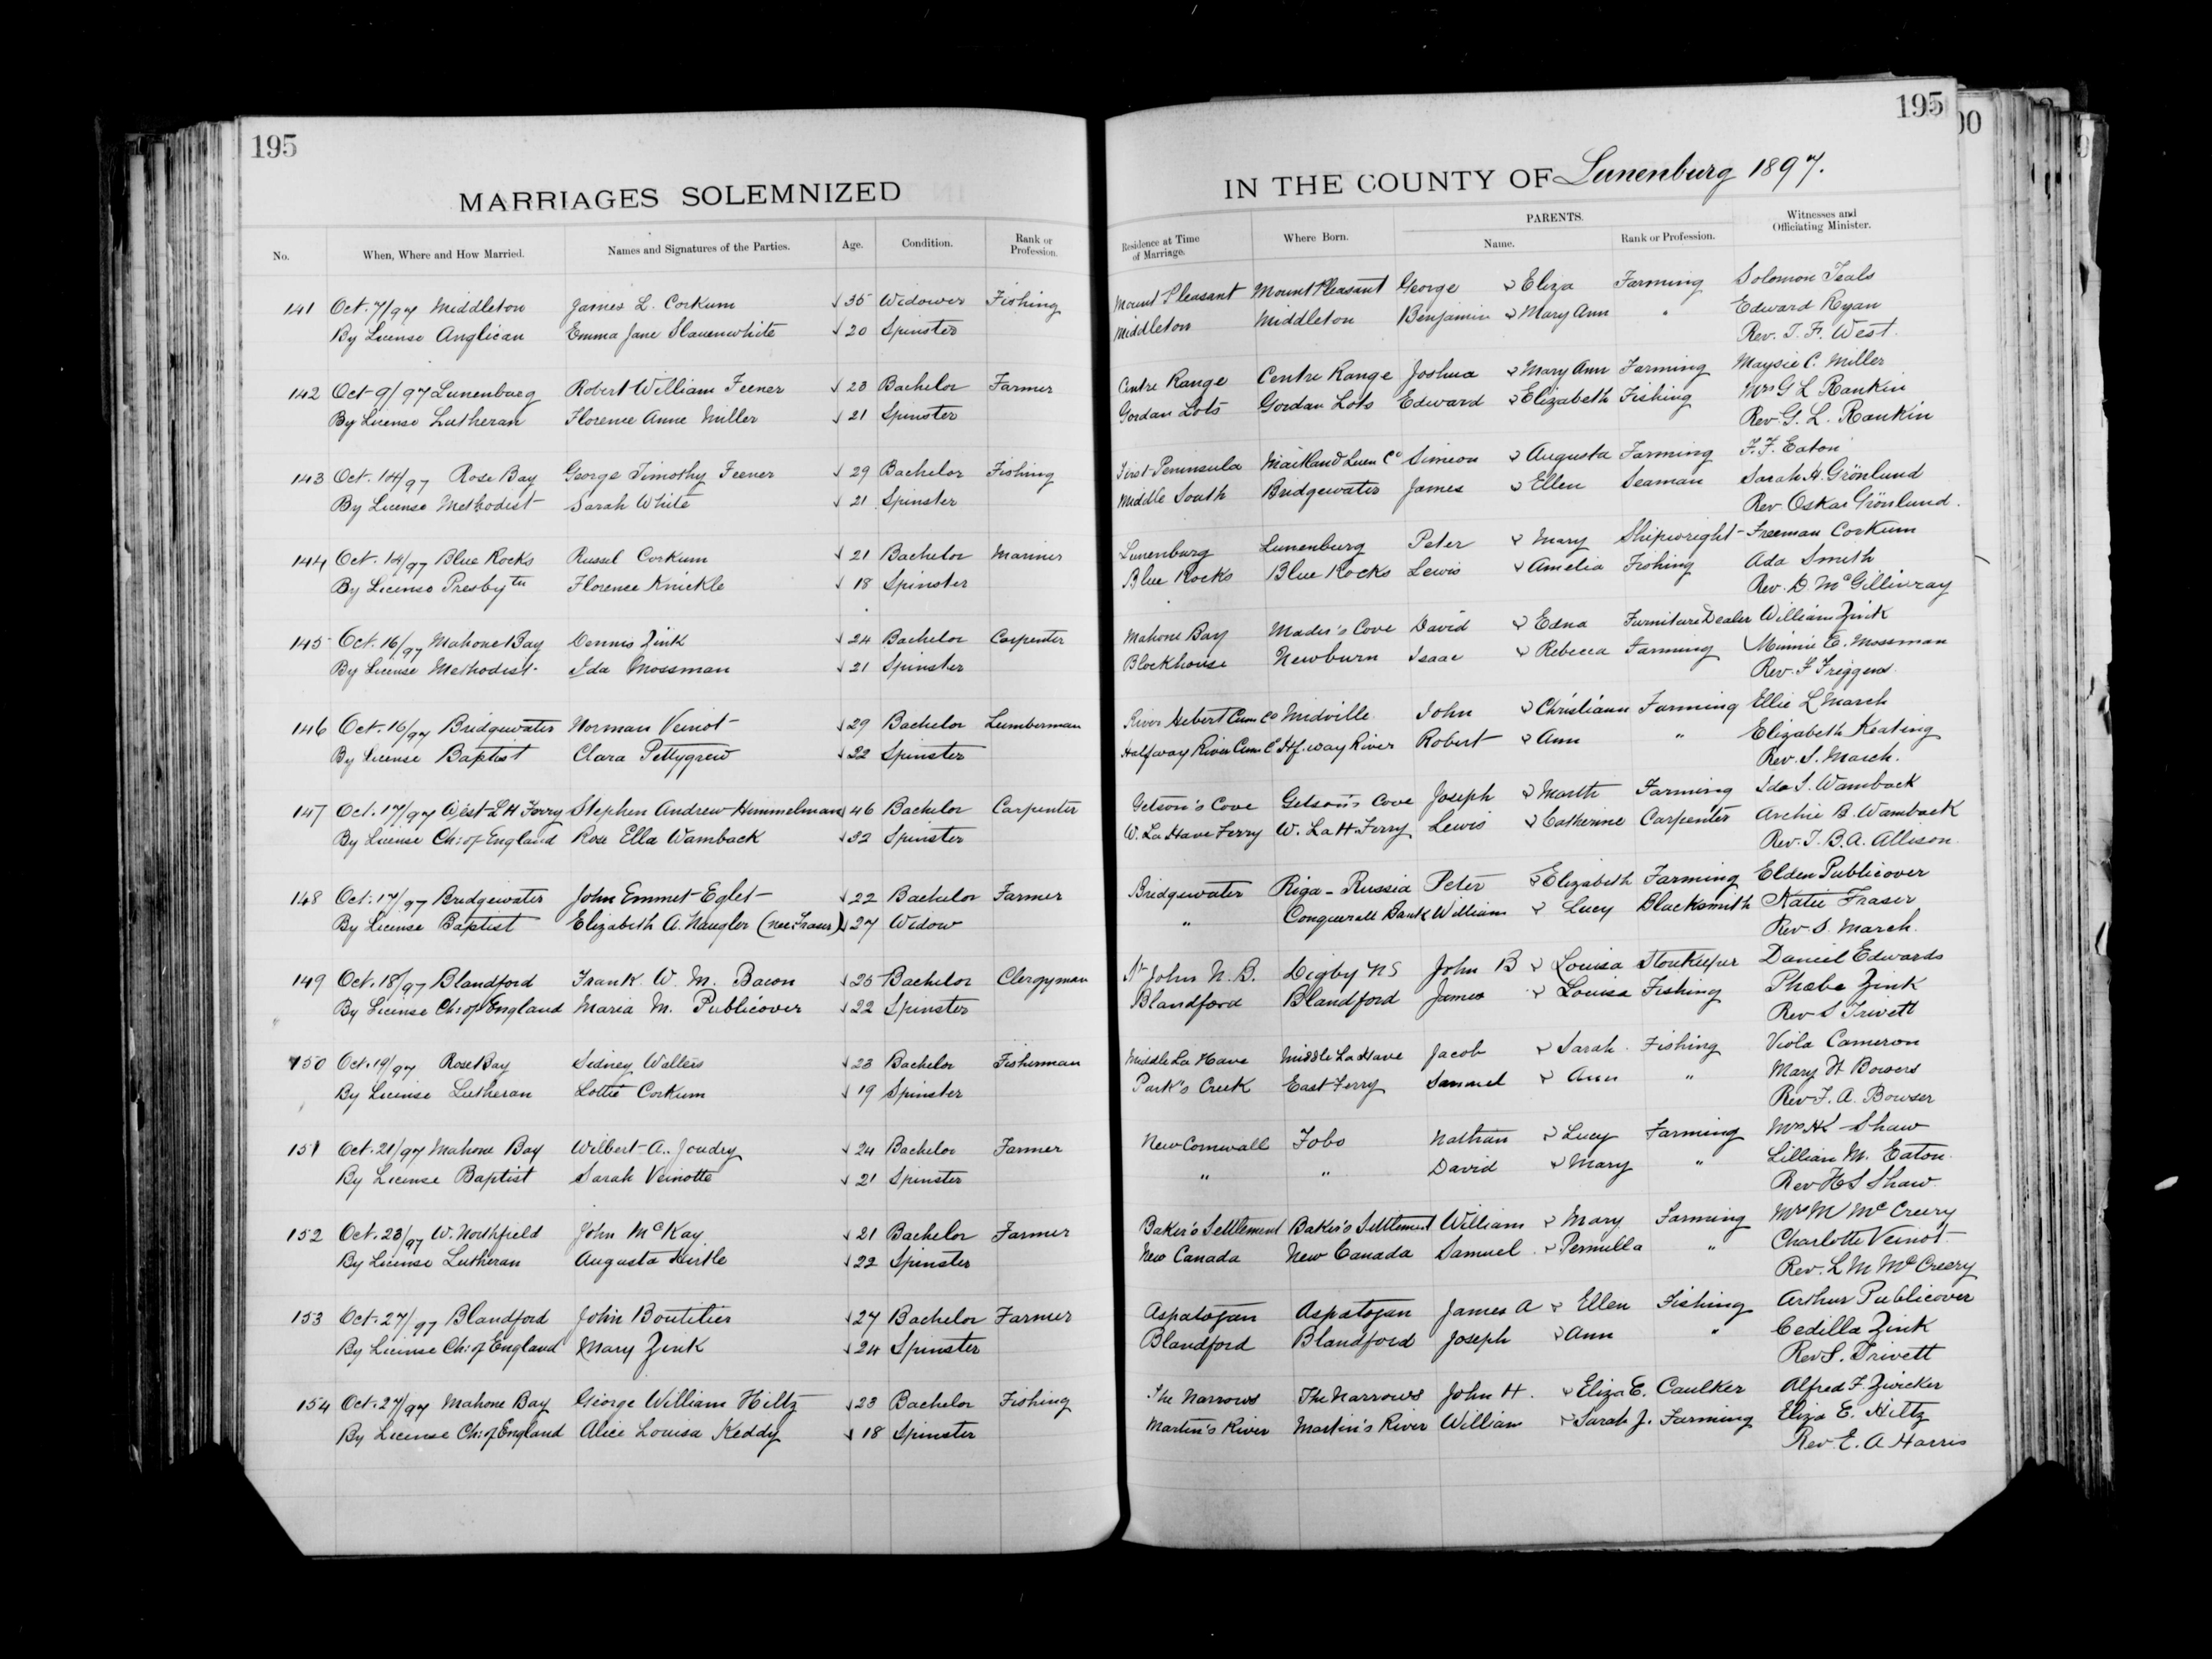 195
MARRIAGES SOLEMNIZED
No. When, Where and How Married. Names and Signatures of the Parties. Age. Condition. Rank or Profession.
141 Oct. 7/97 Middleton James L. Corkum 35 Widower Fishing
By License Anglican Emma Jane Slauenwhite 20 Spinster
142 Oct 9/97 Lunenburg Robert William Feener 23 Bachelor Farmer
By License Lutheran Florence Anne Miller 21 Spinster
143 Oct. 14/97 Rose Bay George Timothy Feener 29 Bachelor Fishing
By License Methodist Sarah White 21 Spinster
144 Oct. 14/97 Blue Rocks Russel Corkum 21 Bachelor Mariner
By License Presbytn Florence Knickle 18 Spinster
145 Oct. 16/97 Mahone Bay Dennis Zink 24 Bachelor Carpenter
By License Methodist Ida Mossman 21 Spinster
146 Oct. 16/97 Bridgewater Norman Veinot 29 Bachelor Lumberman
By License Baptist Clara Pettygrew 22 Spinster
147 Oct. 17/97 West L H Ferry Stephen Andrew Himmelman 46 Bachelor Carpenter
By License Ch: of England Rose Ella Wamback 32 Spinster
148 Oct. 17/97 Bridgewater John Emmet Eglet 22 Bachelor Farmer
By License Baptist Elizabeth A. Naugler (nee Fraser) 27 Widow
149 Oct. 18/97 Blandford Frank W. M. Bacon 25 Bachelor Clergyman
By License Ch: of England Maria M. Publicover 22 Spinster
150 Oct. 19/97 Rose Bay Sidney Walters 23 Bachelor Fisherman
By License Lutheran Lottie Corkum 19 Spinster
151 Oct. 21/97 Mahone Bay Wilbert A. Joudry 24 Bachelor Farmer
By License Baptist Sarah Veinotte 21 Spinster
152 Oct. 23/97 W. Northfield John McKay 21 Bachelor Farmer
By License Lutheran Augusta Hirtle 22 Spinster
153 Oct. 27/97 Blandford John Boutilier 27 Bachelor Farmer
By License Ch: of England Mary Zink 24 Spinster
154 Oct. 27/97 Mahone Bay George William Hiltz 23 Bachelor Fishing
By License Ch: of England Alice Louisa Keddy 18 Spinster
195
00
IN THE COUNTY OF Lunenburg 1897.
Residence at Time of Marriage. Where Born. PARENTS. Name. Rank or Profession. Witnesses and Officiating Minister.
Mount Pleasant Mount Pleasant George & Eliza Farming Solomon Teals
Middleton Middleton Benjamin & Mary Ann " Edward Ryan
Rev. T. F. West.
Centre Range Centre Range Joshua & Mary Ann Farming Maysie C. Miller
Gordan Lots Gordan Lots Edward & Elizabeth Fishing Mrs G L Rankin
Rev. G. L. Rankin
First Peninsula Maitland Lunn Co Simeon & Augusta Farming F. F. Eaton
Middle South Bridgewater James & Ellen Seaman Sarah H. Grönlund
Rev Oskar Grönlund.
Lunenburg Lunenburg Peter & Mary Shipwright Freeman Corkum
Blue Rocks Blue Rocks Lewis & Amelia Fishing Ada Smith
Rev. D. McGillivray
Mahone Bay Mader's Cove David & Edna Furniture Dealer William Zink
Blockhouse Newburn Isaac & Rebecca Farming Minnie E. Mossman
Rev. F Friggens.
River Hebert Cum Co Midville John & Christiann Farming Ellie L March
Halfway River Cum C Hf. way River Robert & Ann " Elizabeth Keating
Rev. S. March.
Getson's Cove Getson's Cove Joseph & Marth Farming Ida S. Wamback
W. La Have Ferry W. La H. Ferry Lewis & Catherine Carpenter Archie B. Wamback
Rev. T. B. A. Allison.
Bridgewater Riga - Russia Peter & Elizabeth Farming Elden Publicover
" Conquerall Bank William & Lucy Blacksmith Katie Fraser
Rev. S. March.
St John N. B. Digby N S John B & Louisa Storekeeper Daniel Edwards
Blandford Blandford James & Louisa Fishing Phoebe Zink
Rev S Trivett
Middle La Have Middle La Have Jacob & Sarah Fishing Viola Cameron
Park's Creek East Ferry Samuel & Ann " Mary H Bowers
Rev F. A. Bowser
New Cornwall Fobo Nathan & Lucy Farming Mrs H K Shaw
" " David & Mary " Lillian M. Eaton.
Rev H S Shaw
Baker's Settlement Baker's Settlement William & Mary Farming Mrs M McCreery
New Canada New Canada Samuel & Permilla " Charlotte Veinot
Rev. L M McCreery
Aspatogan Aspatogan James A & Ellen Fishing Arthur Publicover
Blandford Blandford Joseph & Ann " Cedilla Zink
Rev S. Trivett
The Narrows The Narrows John H. & Eliza E. Caulker Alfred F. Zwicker
Martin's River Martin's River William & Sarah J. Farming Eliza E. Hiltz
Rev. E. A Harris